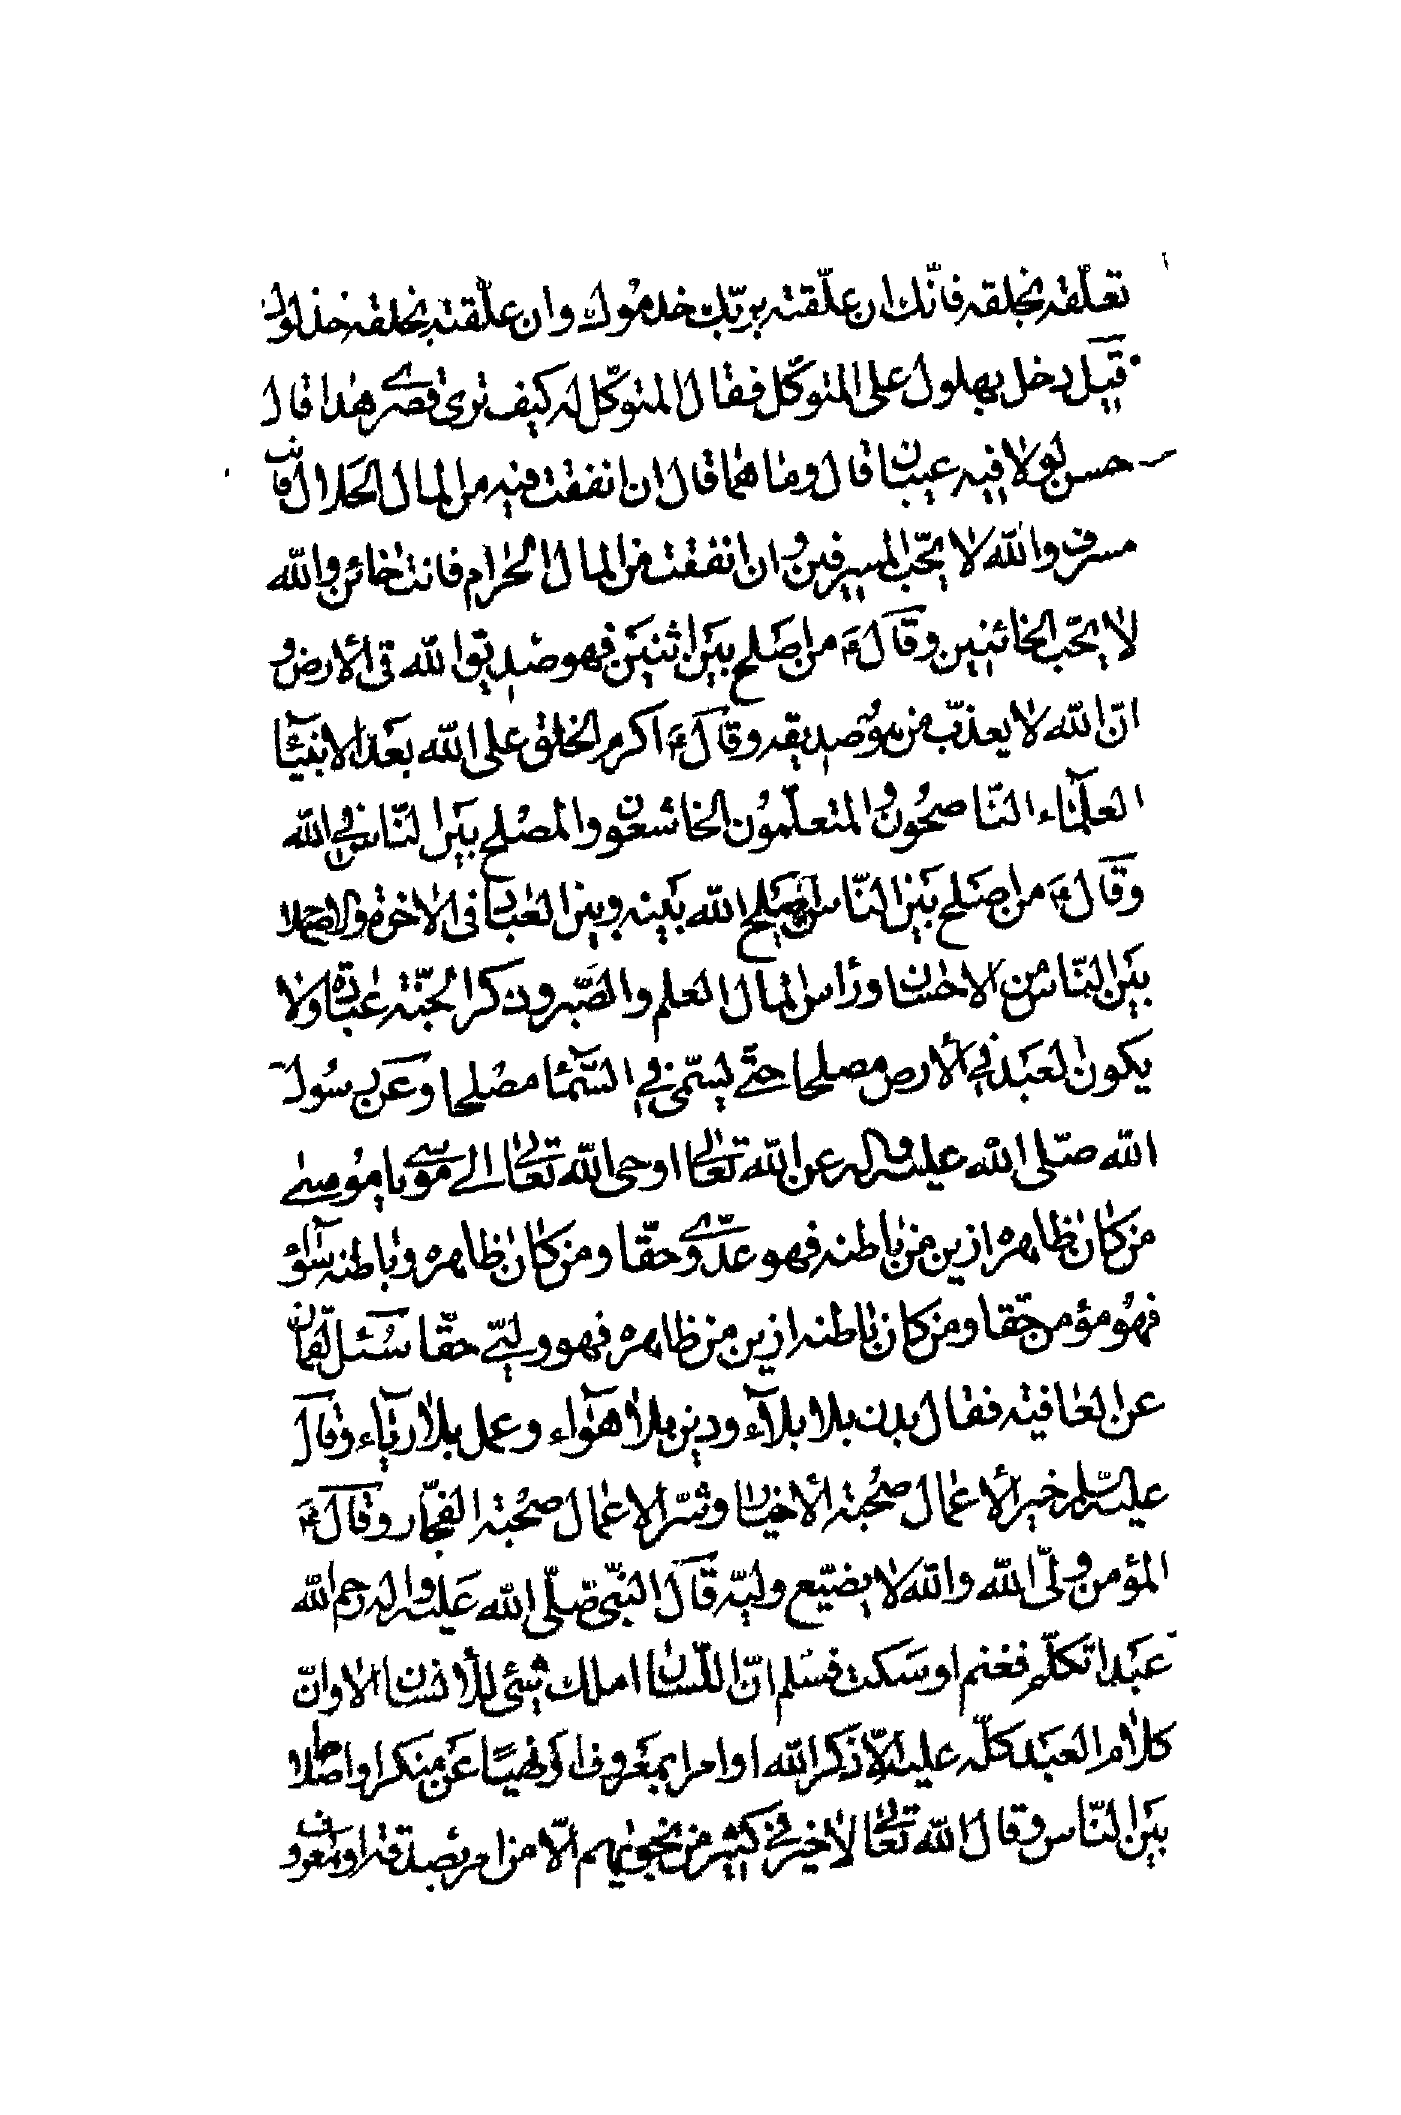 تعلّقه بخلقه فانّك ان علّقته بربّك خدموك وان علّقته بخلقه خذلوك
قيل دخل بهلول على المتوكّل فقال المتوكّل له كيف ترى قصرى هذا قال
حسن لولا فيه عيبان قال وما هما قال ان انفقت فيه من المال الحلال فانت
مسرف والله لا يحّب المسرفين وان انفقت من المال الحرام فانت خائن والله
لا يحّب الخائنين وقال ع من اصلح بين اثنين فهو صديق الله فى الأرض و
انّ الله لا يعذّب من هو صديقه وقال ع اكرم الخلق على الله بعد الانبيآء
العلمآء الناصحون والمتعلّمون الخاشعون والمصلح بين النّاس فى الله
وقال ع من اصلح بين النّاس اصلح الله بينه وبين العباد فى الاخرة والاصلاح
بين النّاس من الاحسان ورأس المال العلم والصّبر ون كرا لجنّة عبادة ولا
يكون العبد في الأرض مصلحا حتّى يسمّى في السّمآء مصلحا وعن رسول
الله صلّى الله عليه وآله عن الله تعالى اوحى الله تعالى الى موسى يا موسى
من كان ظاهره ازين من باطنه فهو عدّوى حقّا ومن كان ظاهره وباطنه سوآء
فهو مؤمن حقّا ومن كان باطنه ازين من ظاهره فهو وليّى حقّا سئل لقمان
عن العافية فقال بدن بلا بلآء ودين بلا هوآء وعمل بلا ريآء وقال
عليه السّلم خير الأعمال صحبة الأخيار وشرّ الاعمال صحبة الفجّار وقال ع
المؤمن ولّى الله والله لا يضيّع وليّه قال النبّى صلّى الله عليه واله رحم الله
عبدا تكلّم فغنم او سكت فسلم انّ اللّسان املك شىء للأنسان الا وانّ
كلام العبد كلّه عليه الّا ذكر الله او امرا بمعروف او نهيًا عن منكر او اصلاحا
بين النّاس وقال الله تعالى لا خير فى كثير من نجويهم الّا من امر بصدقة او معروف